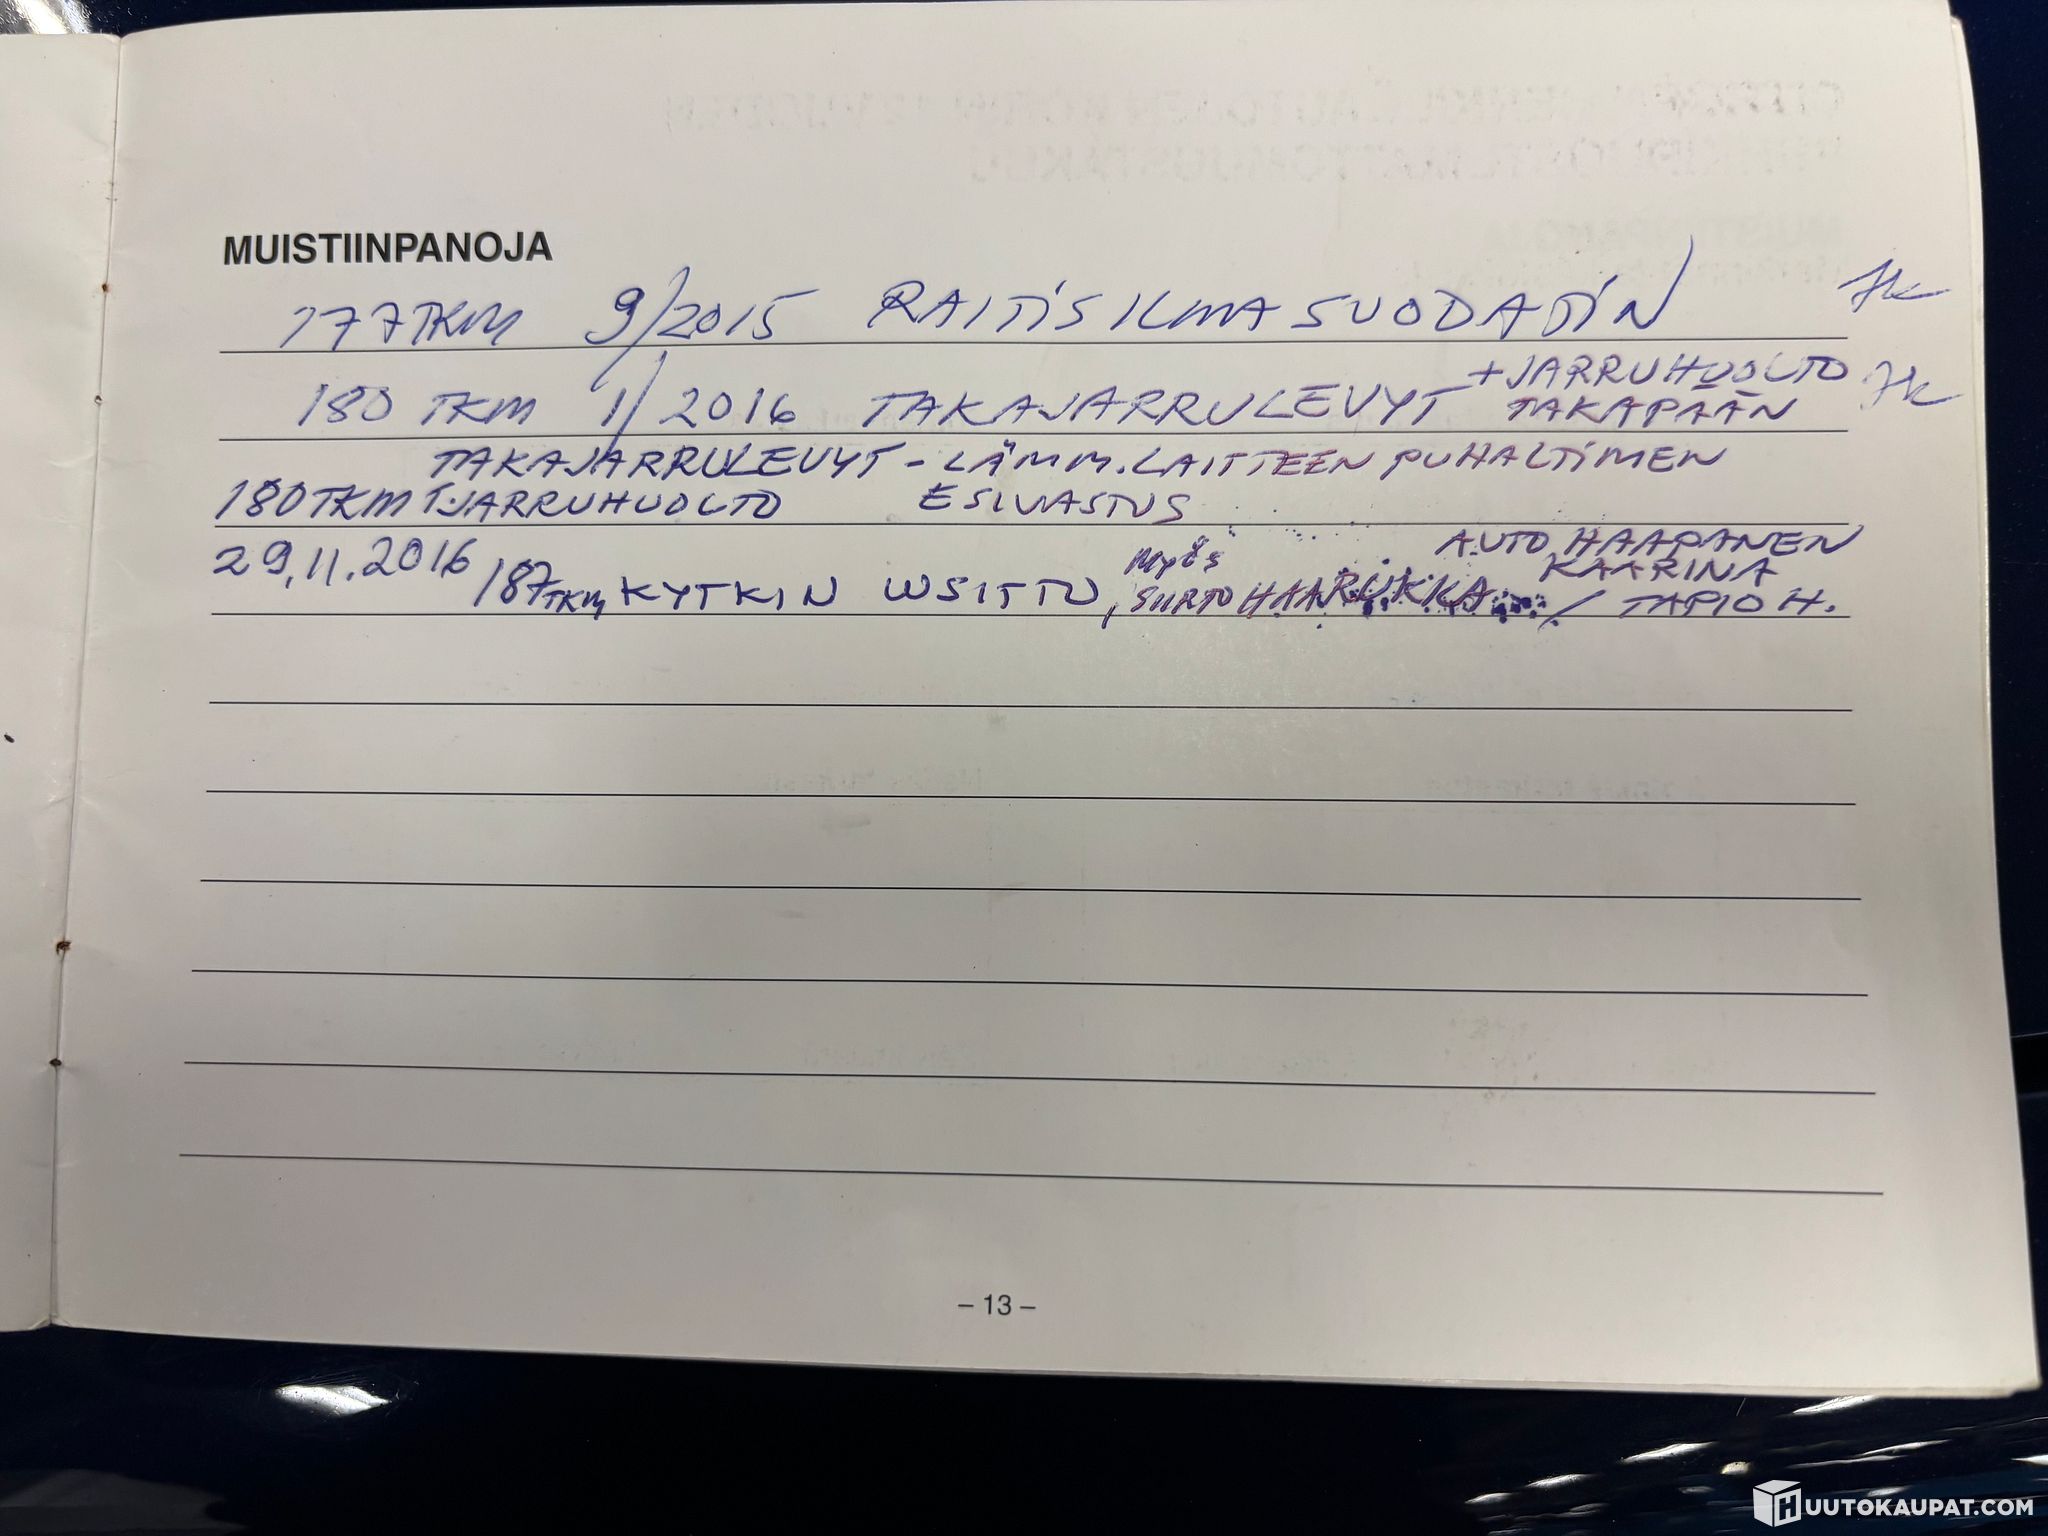 MUISTIINPANOJA
177TKM 9/2015 RAITISILMASUODATIN
180 TKM 1/2016 TAKAJARRULEVYT + JARRUHUOLTO
TAKAPÄÄN
TAKAJARRULEVYT - LÄMM.LAITTEEN PUHALTIMEN
180TKM T.JARRUHUOLTO ESIVASTUS
29.11.2016 187TKM KYTKIN UUSITTU, MYÖS
SIIRTOHAARUKKA / AUTO HAAPANEN
KAARINA
TAPIO H.
- 13 -
HUUTOKAUPAT.COM